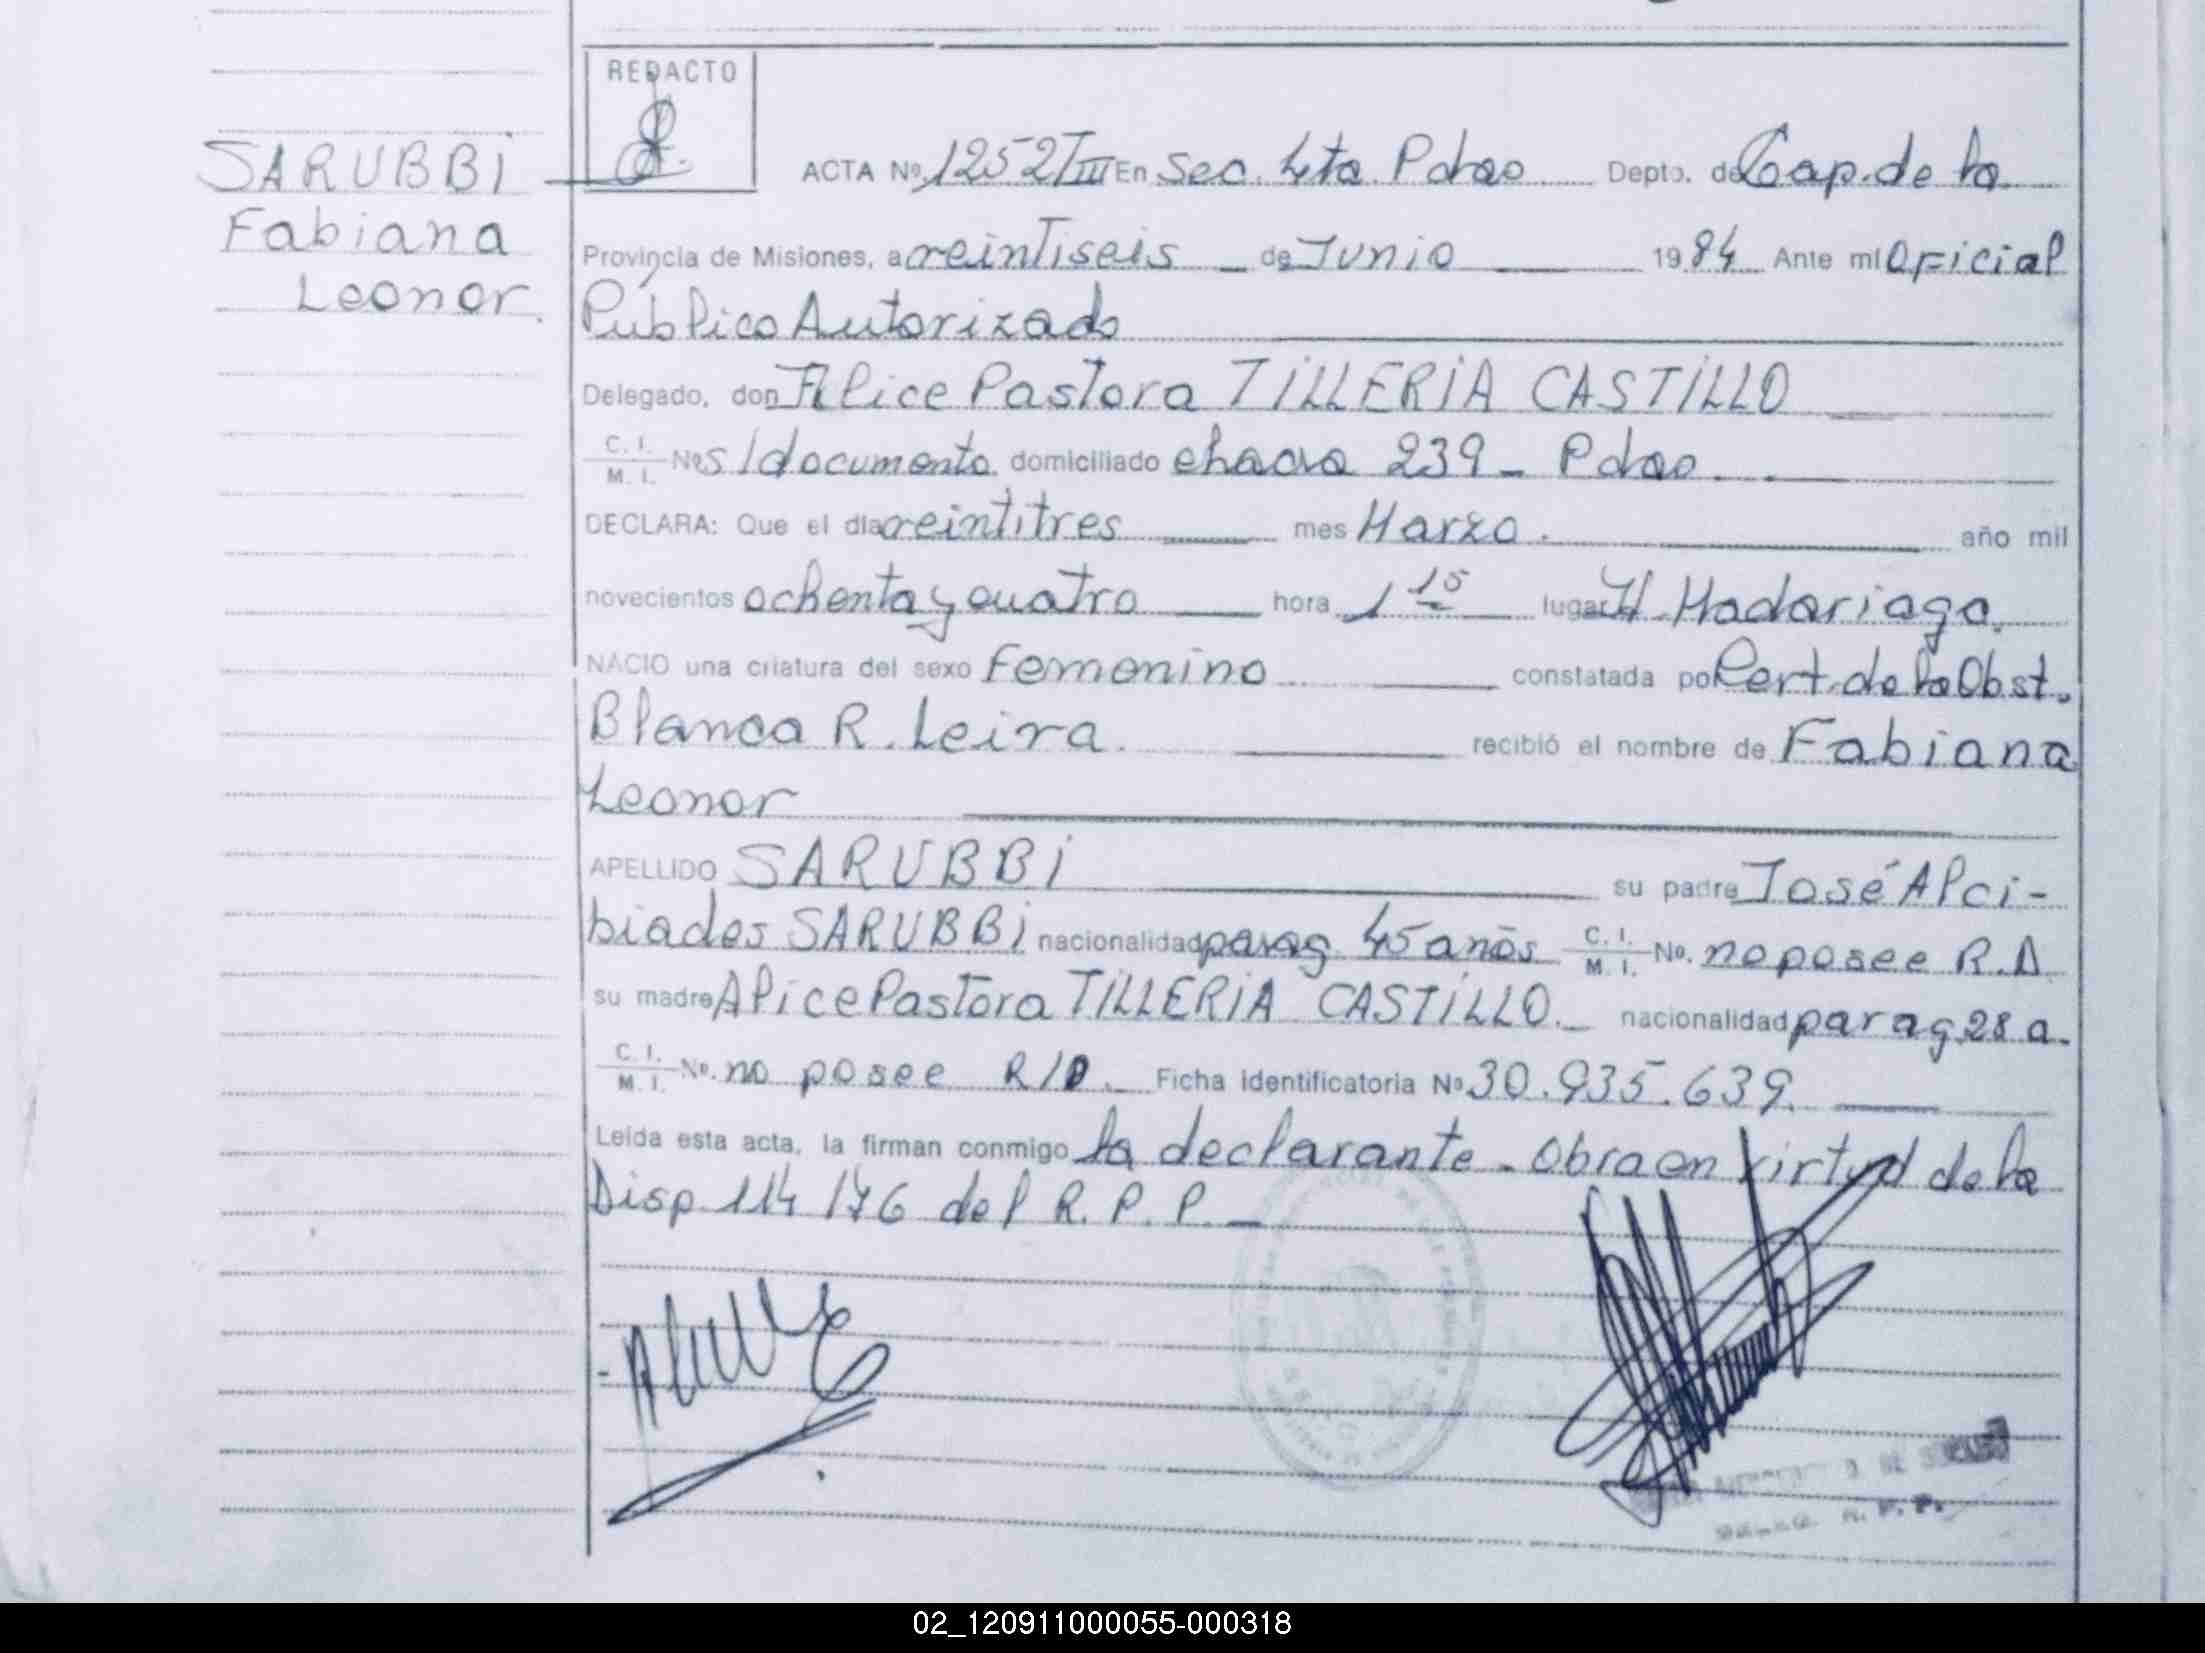 REDACTO
SARUBBI
Fabiana
Leonor.
ACTA Nº 1252 T III En Sec. 4ta Pdas Depto. de Cap. de la
Provincia de Misiones, a veintiseis de Junio 1984 Ante mi Oficial
Público Autorizado
Delegado, don Alice Pastora TILLERIA CASTILLO
C. I. / M. I. Nº s/documento domiciliado chacra 239 - Pdas
DECLARA: Que el día veintitres mes Marzo. año mil
novecientos ochenta y cuatro hora 1 15 lugar H. Madariaga.
NACIO una criatura del sexo Femenino constatada por Cert. de la Obst.
Blanca R. Leira. recibió el nombre de Fabiana
Leonor
APELLIDO SARUBBI su padre José Alci-
biades SARUBBI nacionalidad parag. 45 años C. I. / M. I. No. no posee R.A
su madre Alice Pastora TILLERIA CASTILLO. nacionalidad parag. 28 a.
C. I. / M. I. Nº. no posee R/A. Ficha identificatoria Nº 30.935.639.
Leída esta acta, la firman conmigo la declarante - Obra en virtud de la
Disp. 114/76 del R. P. P. -
02_120911000055-000318